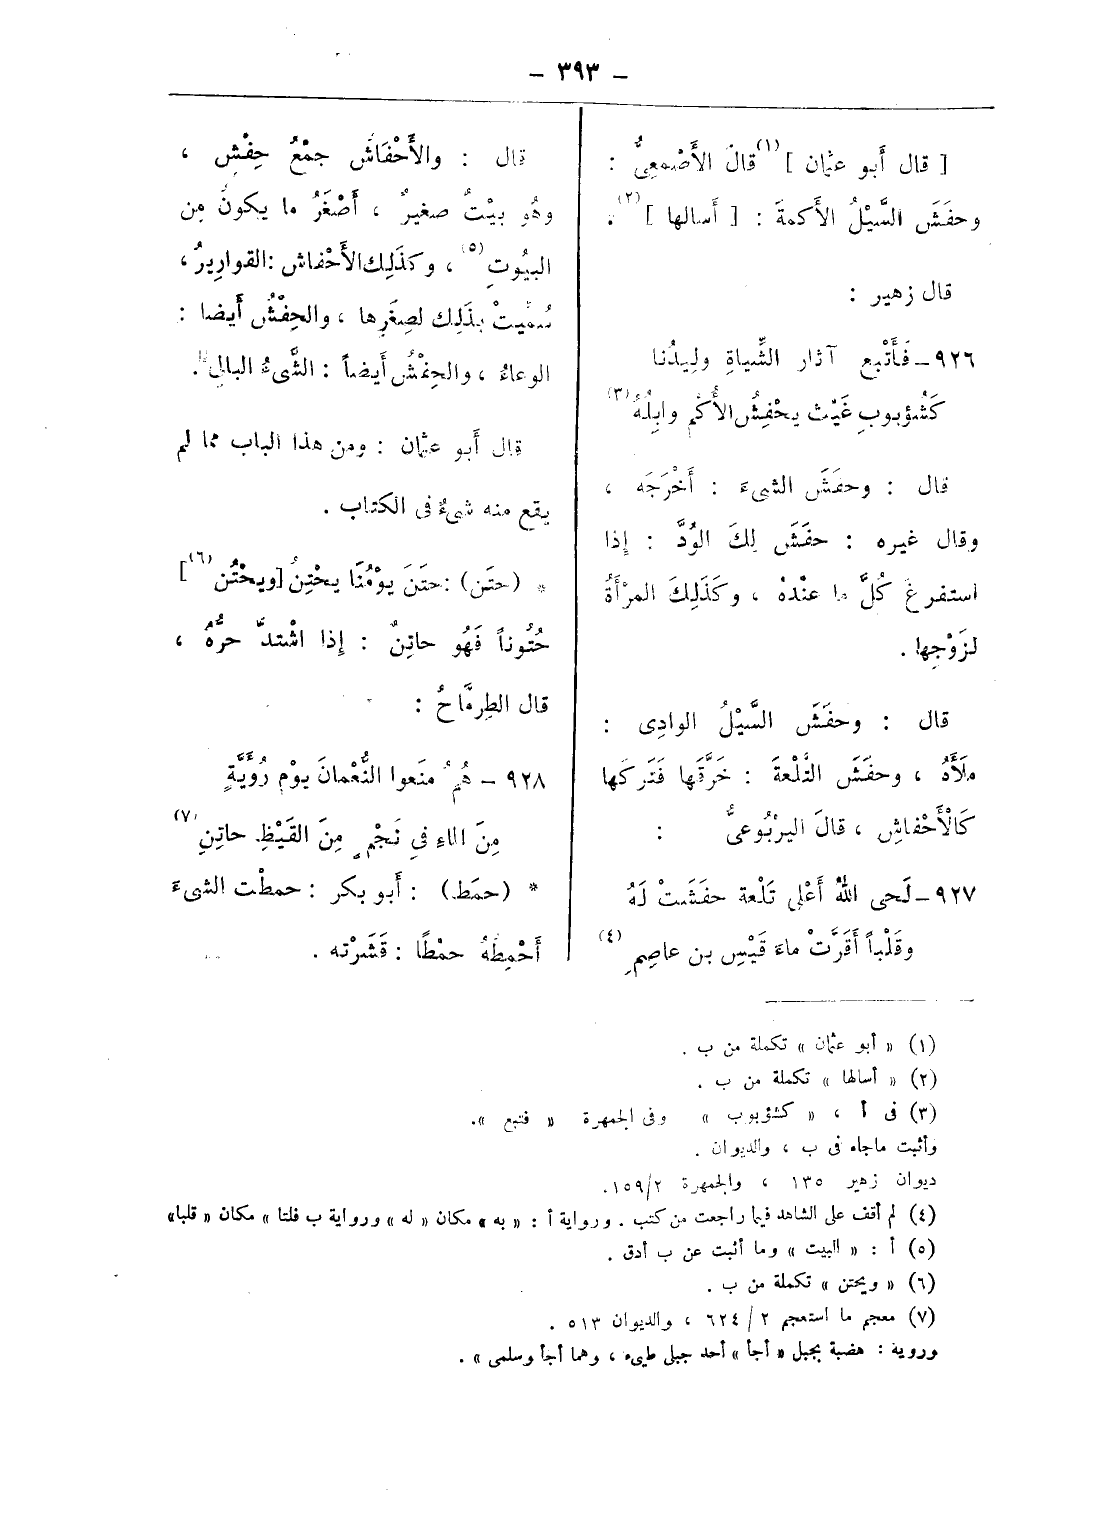 – ٣٩٣ –
[ قال أبو عثمان ](١) قالَ الأَصْمعِىُّ :
وحفَشَ السَّيْلُ الأَكمةَ : [ أَسالها ](٢) .
قال زهير :
٩٢٦ – فَأَتْبع آثار الشِّياةِ ولِيدُنا
كَشُؤبوبِ غَيْثٍ يحْفِشُ الأُكْم وابِلُهْ(٣)
قال : وحفَشَ الشىءَ : أَخْرَجَه ،
وقال غيره : حفَشَ لكَ الوُدَّ : إِذا
استفرغ كُلَّ ما عنْدهْ ، وكَذَلِكَ المرْأَةُ
لزَوْجِها .
قال : وحفَشَ السَّيْلُ الوادِى :
ملَأَهُ ، وحفَشَ التَّلْعةَ : خَرَّقَها فَتَركَها
كَالْأَحْفاشِ ، قالَ اليرْبُوعىُّ :
٩٢٧ – لَحى اللهُ أَعْلى تَلْعة حفَشَتْ لَهُ
وقَلْباً أَقَرَّتْ ماءَ قَيْسِ بن عاصِمِ(٤)
قال : والأَحْفَاشُ جمْعُ حِفْشٍ ،
وهُو بيْتٌ صغيرٌ ، أَصْغَرُ ما يكونُ مِن
البيُوتِ(٥) ، وكَذَلِك الأَحْفاش : القوارِيرُ ،
سُمِّيتْ بذَلِك لصِغَرِها ، والحِفْشُ أَيضا :
الوعاءُ ، والحِفْشُ أَيضاً : الشَّىءُ البالِى .
قال أَبو عثمان : ومن هذا الباب مما لم
يقع منه شىءٌ فى الكتاب .
* (حتَن) : حتَنَ يوْمُنَا يحْتِنُ [ويحْتُن(٦)]
حُتُوناً فَهُو حاتِنٌ : إِذا اشْتدَّ حرُّهُ ،
قال الطِرمَّاحُ :
٩٢٨ – هُمُ منَعوا النُّعْمانَ يوْم رُؤَيَّةٍ
مِنَ الماءِ فى نَجْمٍ مِنَ القَيْظِ حاتِنِ(٧)
* (حمَط) : أَبو بكر : حمطْت الشىءَ
أَحْمِطهُ حمْطًا : قَشَرْته .
(١) « أبو عثمان » تكملة من ب .
(٢) « أسالها » تكملة من ب .
(٣) فى أ ، « كشؤبوب » وفى الجمهرة « فتبع » .
وأثبت ماجاء فى ب ، والديوان .
ديوان زهير ١٣٥ ، والجمهرة ١٥٩/٢ .
(٤) لم أقف على الشاهد فيما راجعت من كتب . ورواية أ : « به » مكان « له » ورواية ب فلتا » مكان « قلبا»
(٥) أ : « البيت » وما أثبت عن ب أدق .
(٦) « ويحتن » تكملة من ب .
(٧) معجم ما استعجم ٢ / ٦٢٤ ، والديوان ٥١٣ .
ورويه : هضبة بجبل « أجأ » أحد جبلى طيىء ، وهما أجأ وسلمى » .